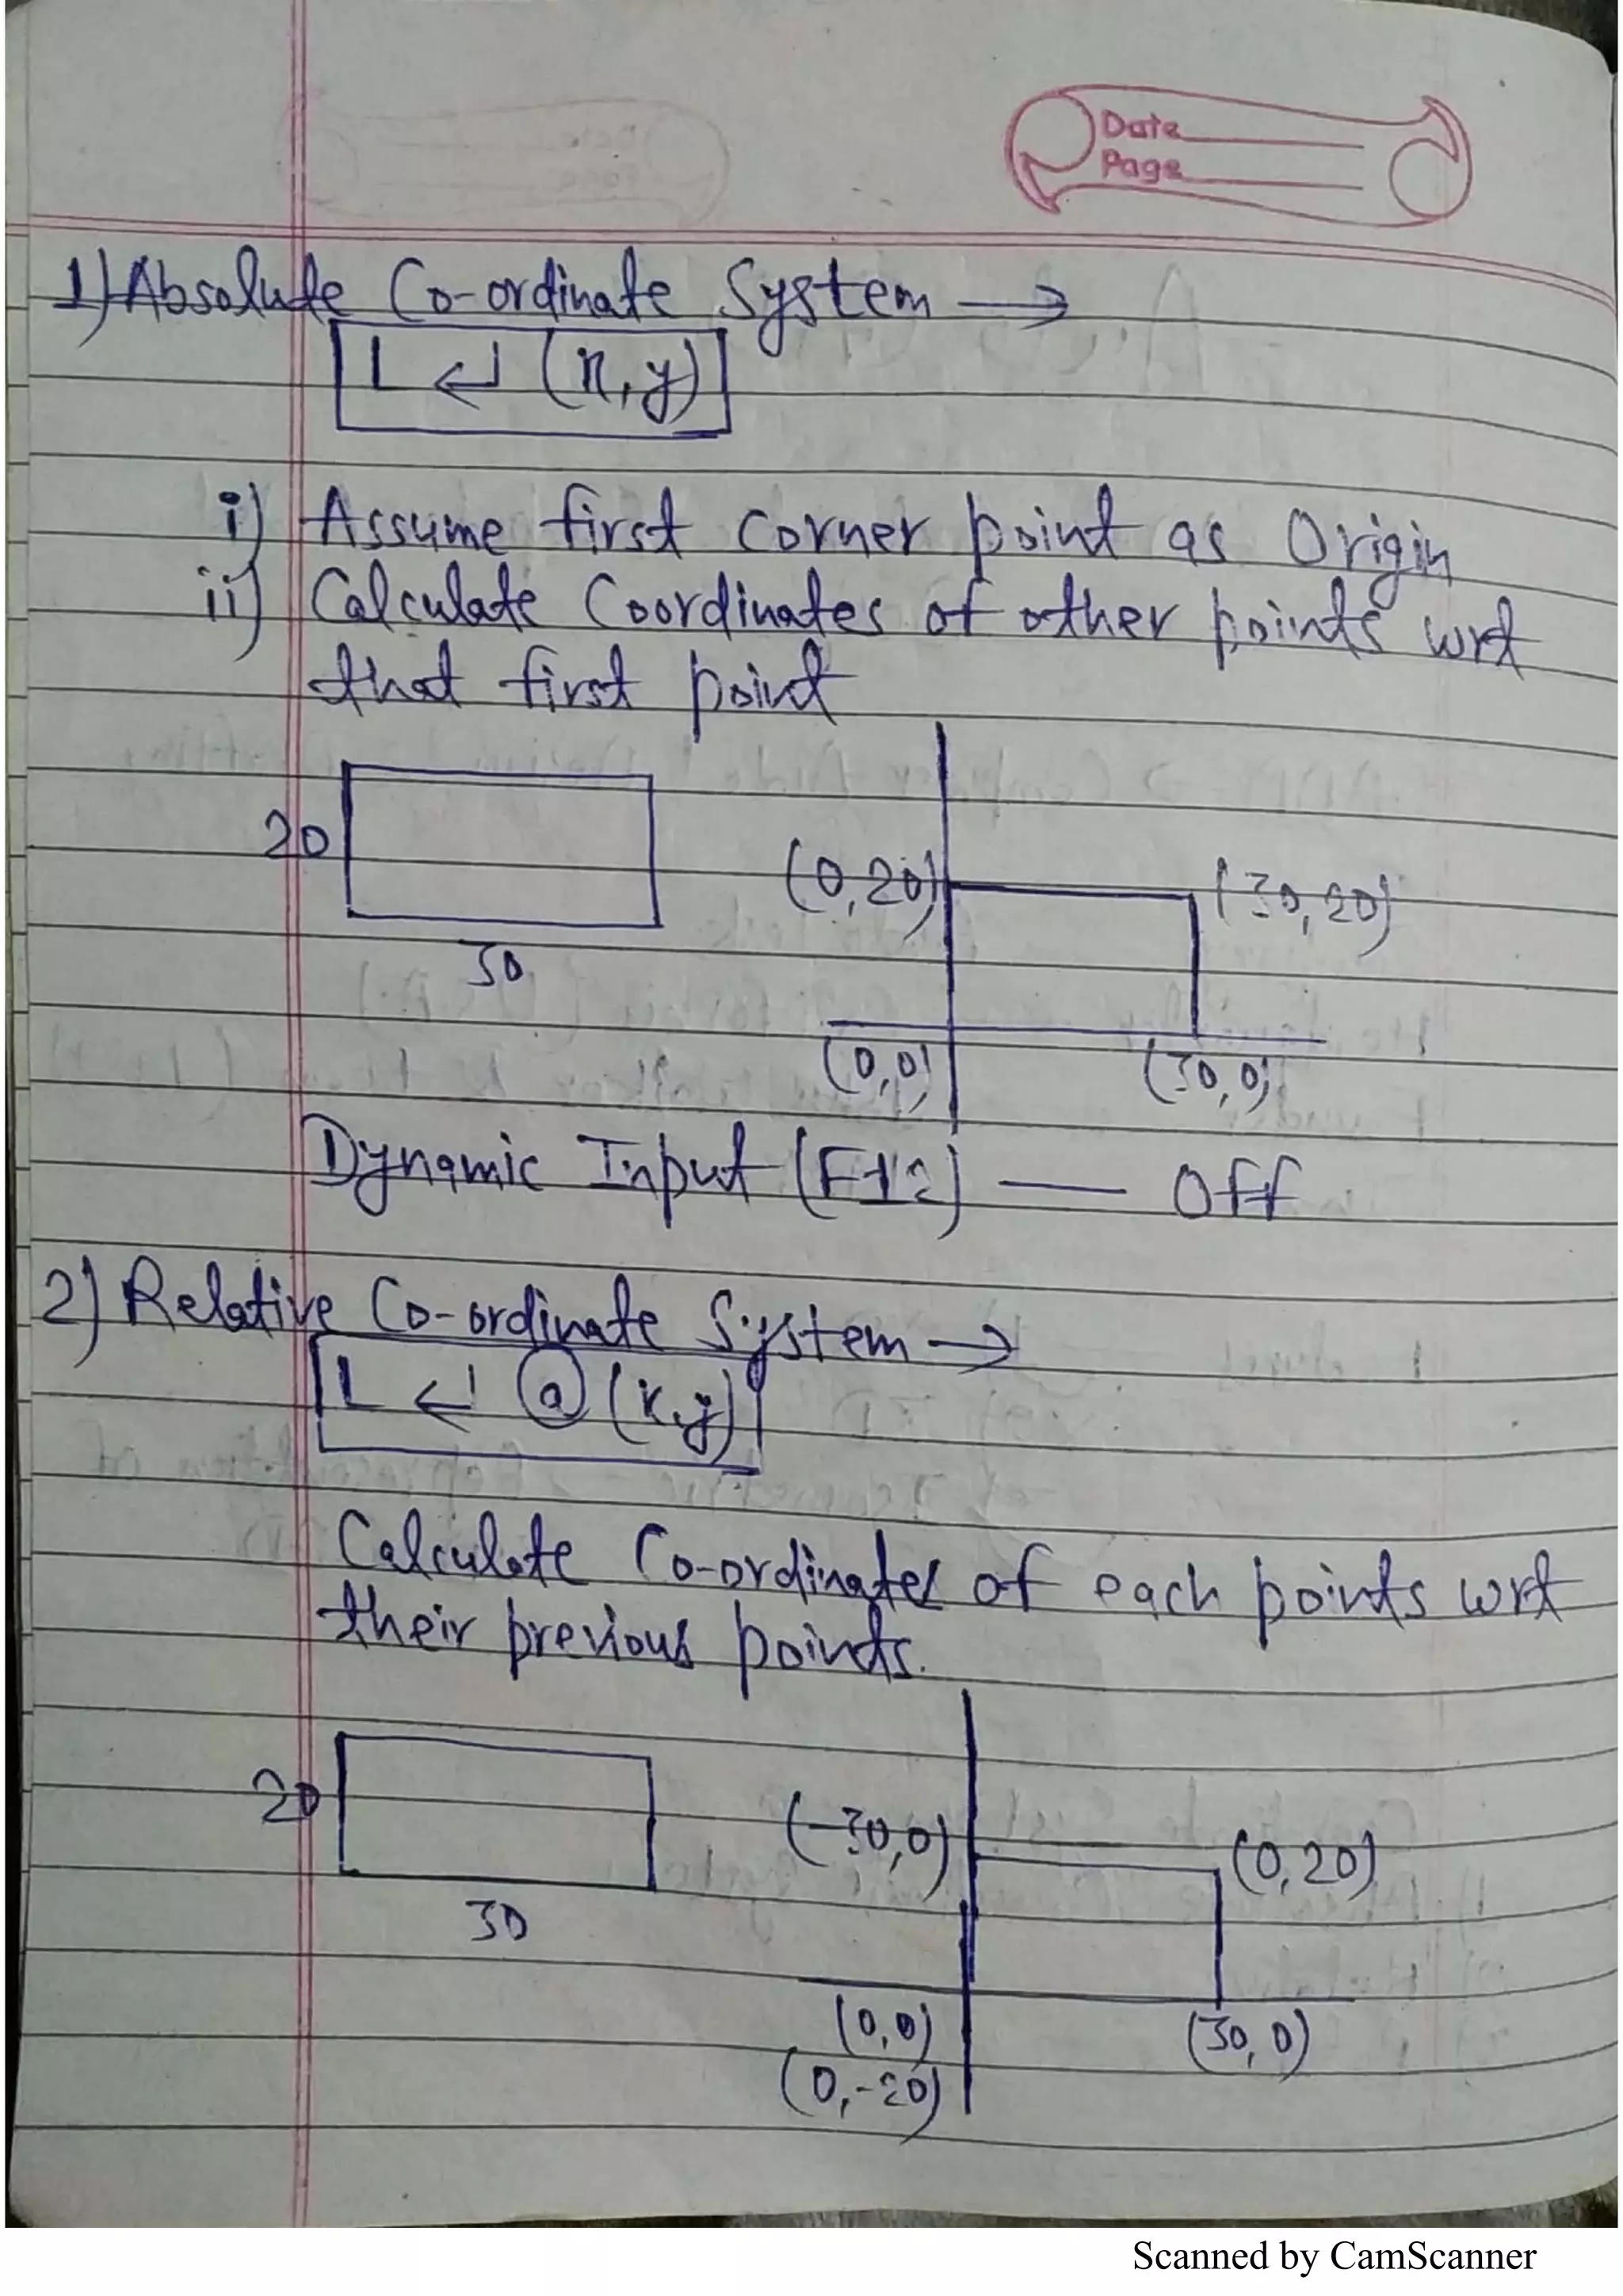 Date
Page
1) Absolute Co-ordinate System →
L ↵ (x,y)
i) Assume first corner point as Origin
ii) Calculate Coordinates of other points wrt
that first point
20
30
(0,20)
(30,20)
(0,0)
(30,0)
Dynamic Input (F12) — Off
2) Relative Co-ordinate System →
L ↵ @ (x,y)
Calculate Co-ordinates of each points wrt
their previous points.
20
30
(-30,0)
(0,20)
(0,0)
(30,0)
(0,-20)
Scanned by CamScanner